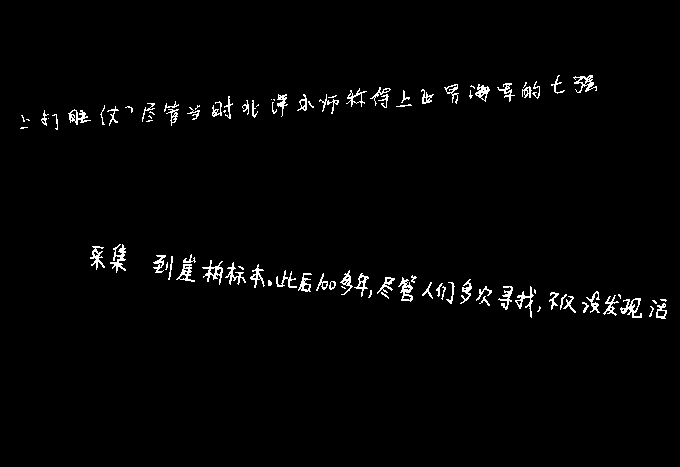 上打胜仗?尽管当时北洋水师称得上世界海军的七强
采集到崖柏标本。此后100多年,尽管人们多次寻找,不仅没发现活